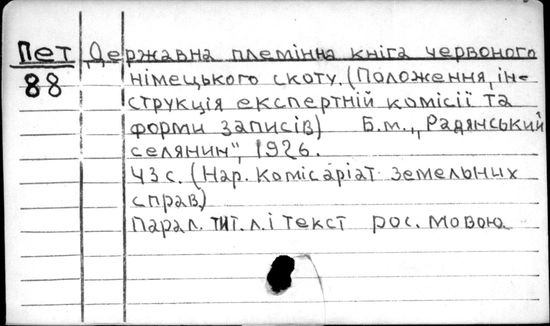 Пет Державна племінна кніга червоного
88 німецького скоту. (Положення, ін-
струкція експертній комісії та
форми записів) Б.м., „Радянський
селянин", 1926.
43 с. (Нар. комісаріат земельних
справ)
Парал. тит. л. і текст рос. мовою